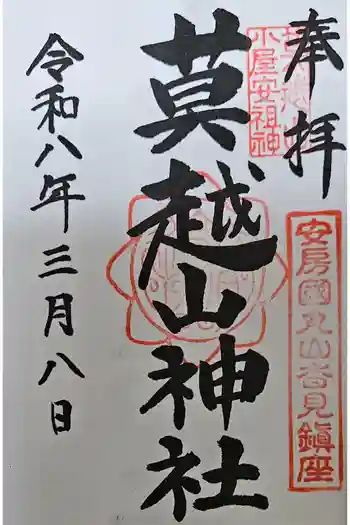 奉拝
安房國丸山沓見鎮座
莫越山神社
令和八年三月八日